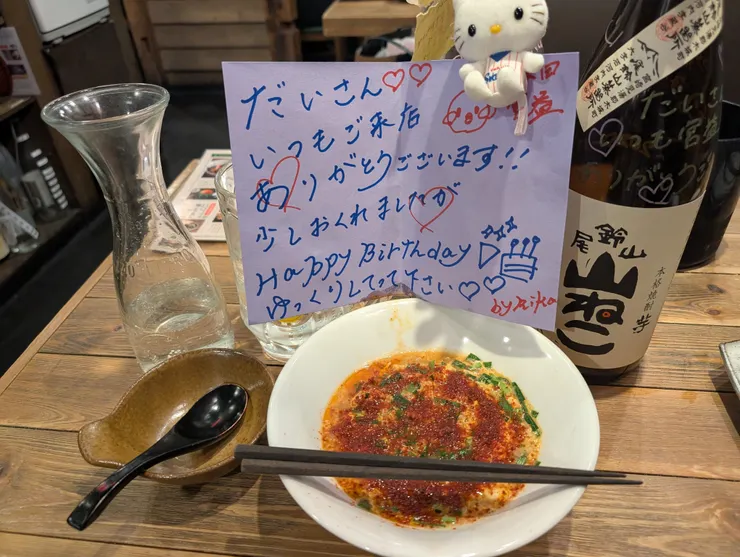 だいさん♡♡
いつもご来店
ありがとうございます!!
少しおくれましたが
Happy Birthday
ゆっくりしてって下さい♡♡
by Rika
だいさ
いつも
ありがとう
尾鈴山
山ねこ
本格焼酎 芋